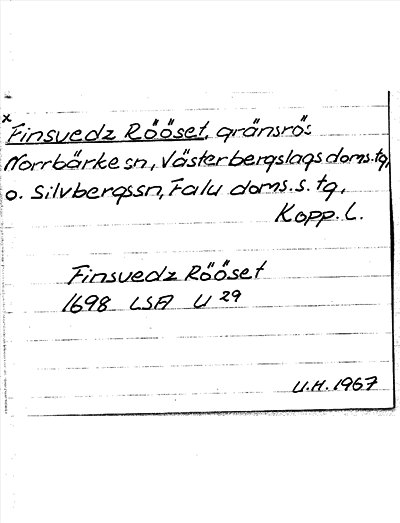 x
Finsvedz Rööset, gränsrös
Norrbärke sn, Västerbergslags doms.tg,
o. Silvbergssn, Falu doms.s. tg,
Kopp. L.
Finsvedz Rööset
1698 LSA U 29
U.H. 1967